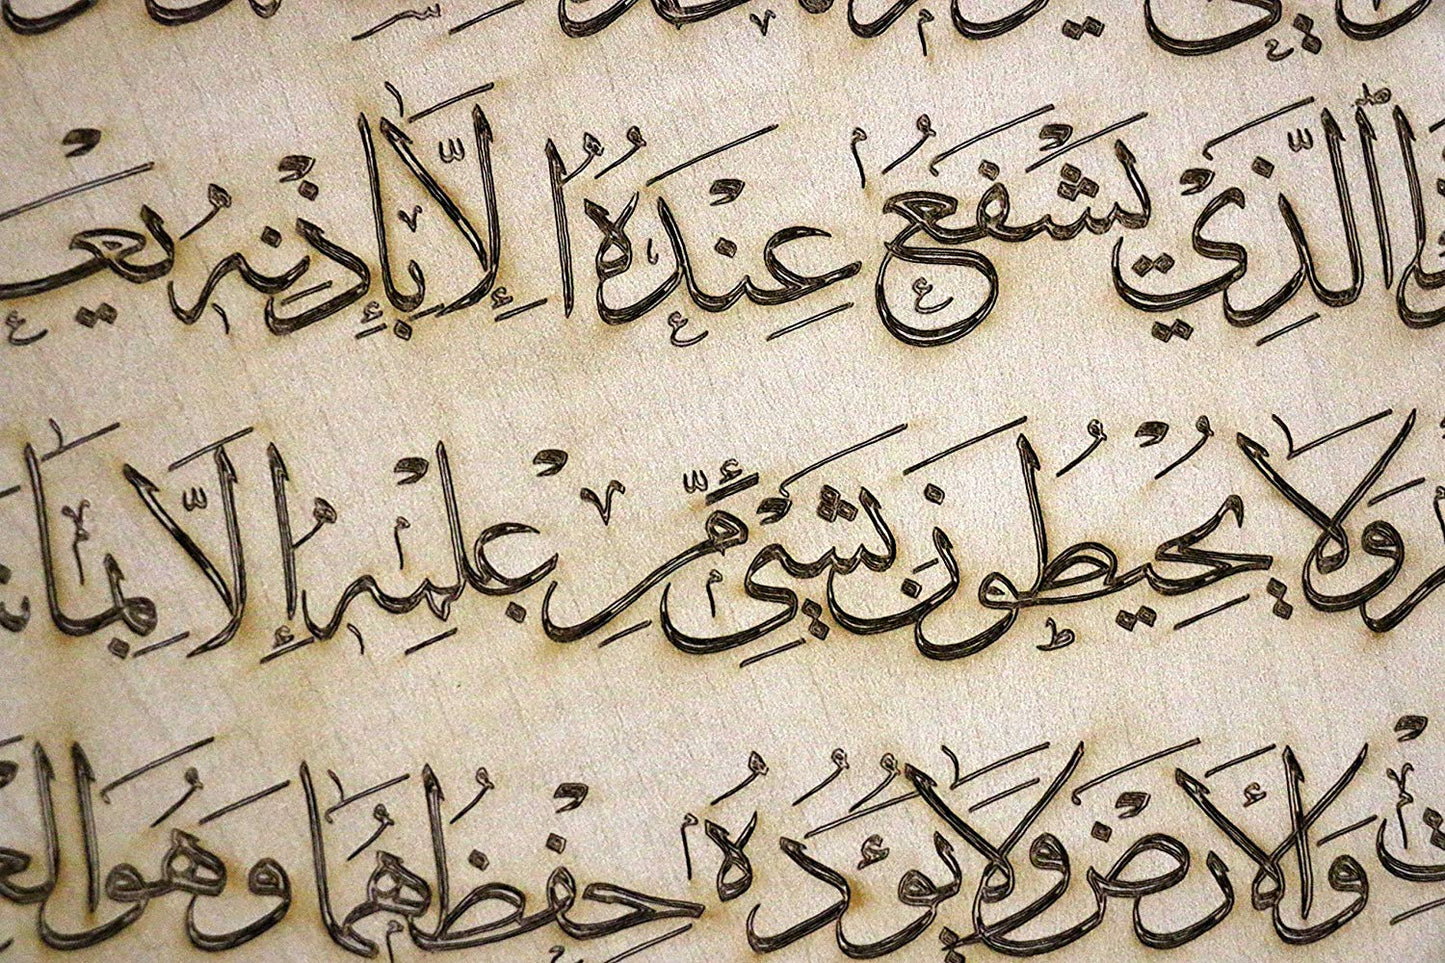 ذَا الَّذِي يَشْفَعُ عِنْدَهُ إِلَّا بِإِذْنِهِ يَعْ
وَلَا يُحِيطُونَ بِشَيْءٍ مِّنْ عِلْمِهِ إِلَّا بِمَا
تِ وَالْأَرْضَ وَلَا يَؤُدُهُ حِفْظُهُمَا وَهُوَ الْعَ